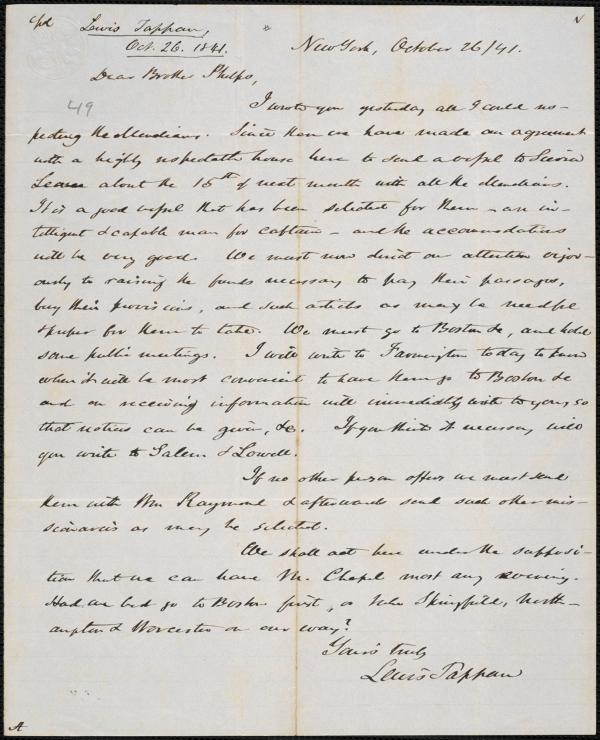 Lewis Tappan,
Oct. 26. 1841.
New York, October 26/41.
Dear Brother Phelps,
49
I wrote you yesterday all I could res-
pecting the Mendians. Since then we have made an agreement
with a highly respectable house here to send a vessel to Sierra
Leone about the 15th of next month with all the Mendians.
It is a good vessel that has been selected for them - an in-
telligent & capable man for captain - and the accommodations
will be very good. We must now direct our attention vigor-
ously to raising the funds necessary to pay their passages,
buy their provisions, and such articles as may be needful
& proper for them to take. We must go to Boston &c, and hold
some public meetings. I will write to Farmington today to know
when it will be most convenient to have them go to Boston &c
and on receiving information will immediately write to you, so
that notices can be given, &c. If you think it necessary, will
you write to Salem & Lowell.
If no other person offers we must send
them with Wm Raymond & afterwards send such other mis-
sionaries as may be selected.
We shall act here under the supposi-
tion that we can have M. Chapel most any evening.
Had we best go to Boston first, or take Springfield, North-
ampton & Worcester on our way?
Yours truly
Lewis Tappan